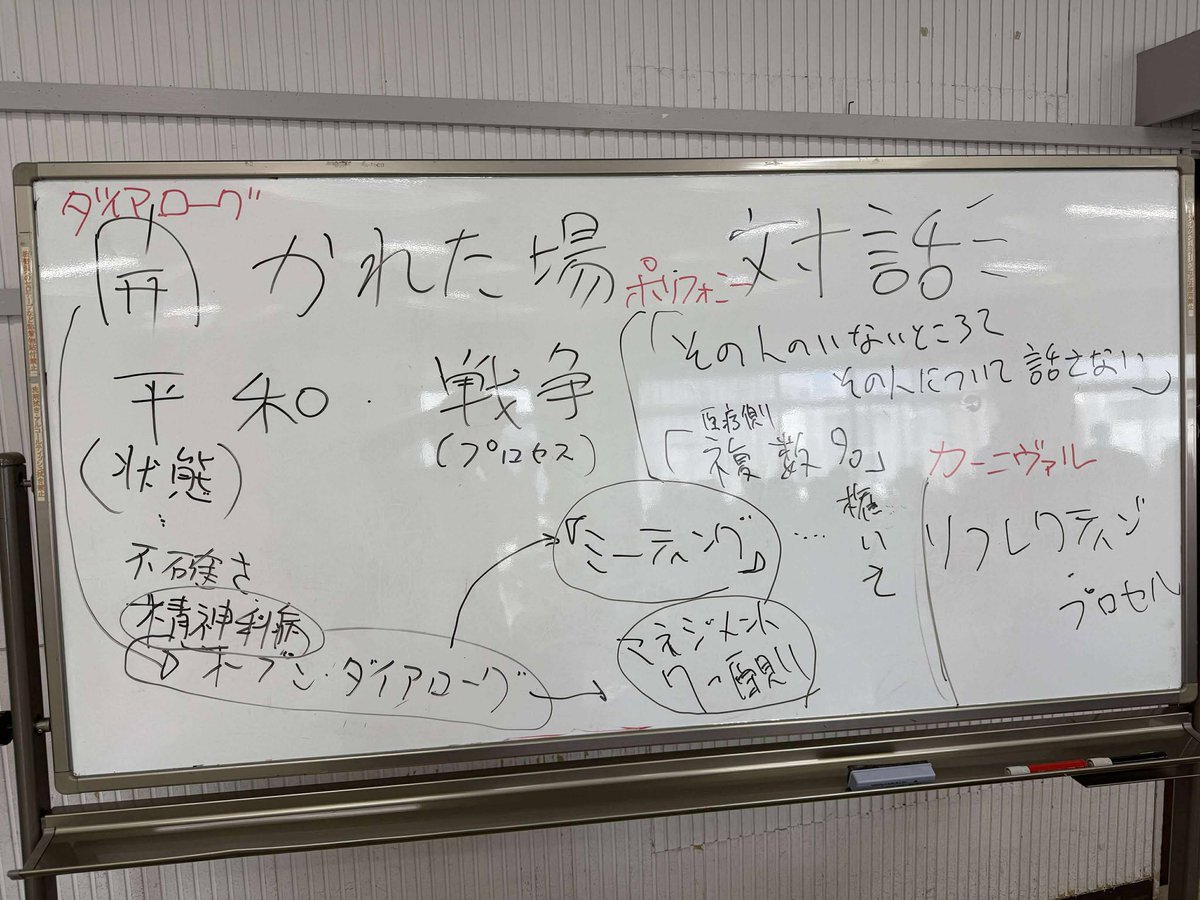 ダイアローグ
開かれた場 対話
ポリフォニー
平和・戦争
(状態) (プロセス)
「その人のいないところで
その人について話さない」
医療側
「複数名」
カーニヴァル
リフレクティング
プロセス
不確実さ
精神科病
オープン・ダイアローグ
『ミーティング』
‥‥
いて
マネジメント